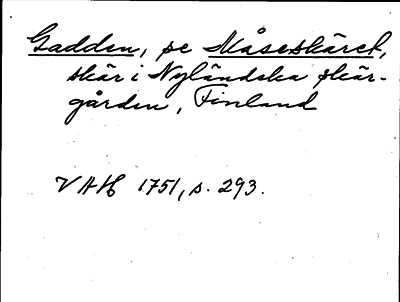 Gadden, se Måseskäret,
skär i Nyländska skär-
gården, Finland
VAH 1751, s. 293.